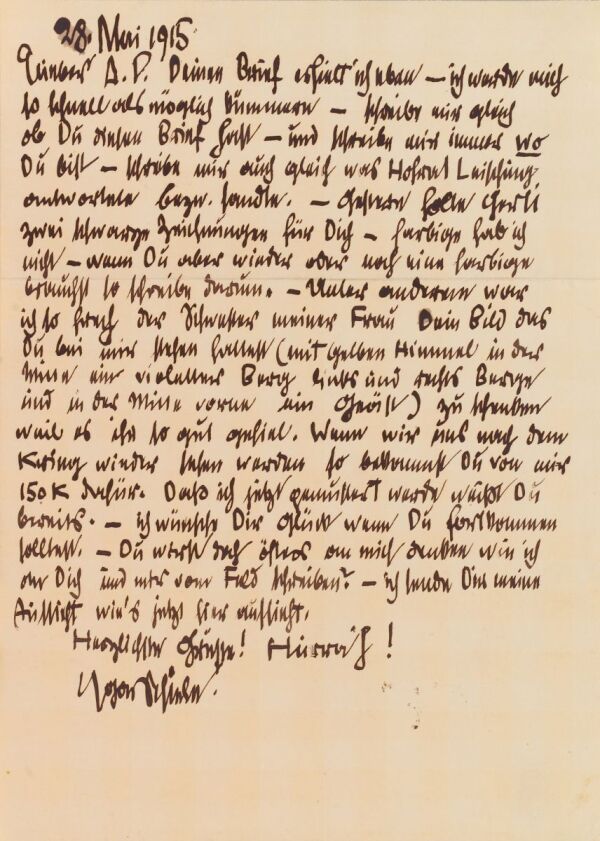 28. Mai 1915
Lieber A. P. Deinen Brief erhielt ich eben – ich werde mich
so schnell als möglich kümmern – schreibe mir gleich
ob Du diesen Brief hast – und schreibe mir immer wo
Du bist – schreibe mir auch gleich was Hofrat Leisching
antwortete bezw. handte. – Gestern holte Gerti
zwei schwarze Zeichnungen für Dich – farbige hab ich
nicht – wenn Du aber wieder oder noch eine farbige
brauchst so schreibe darum. – Unter anderem war
ich so frech der Schwester meiner Frau Dein Bild das
Du bei mir stehen hattest (mit gelben Himmel in der
Mitte ein violetter Berg links und rechts Berge
und in der Mitte vorne ein Geäst) zu schenken
weil es ihr so gut gefiel. Wenn wir uns nach dem
Krieg wieder sehen werden so bekommst Du von mir
150 K dafür. Daß ich jetzt gemustert werde weißt Du
bereits. – ich wünsche Dir Glück wenn Du fortkommen
solltest. – Du wirst doch öfters an mich denken wie ich
an Dich und mir vom Feld schreiben? – ich sende Dir meine
Aussicht wie's jetzt hier aussieht.
Herzlichste Grüsse! Hurrah!
Egon Schiele.